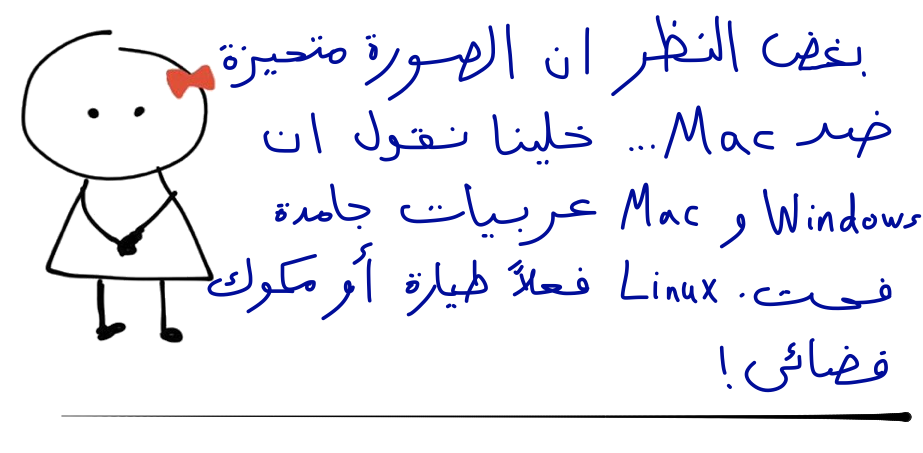 بغض النظر ان الصورة متحيزة
ضد Mac... خلينا نقول ان
Windows و Mac عربيات جامدة
فحت. Linux فعلاً طيارة أو مكوك
فضائى!